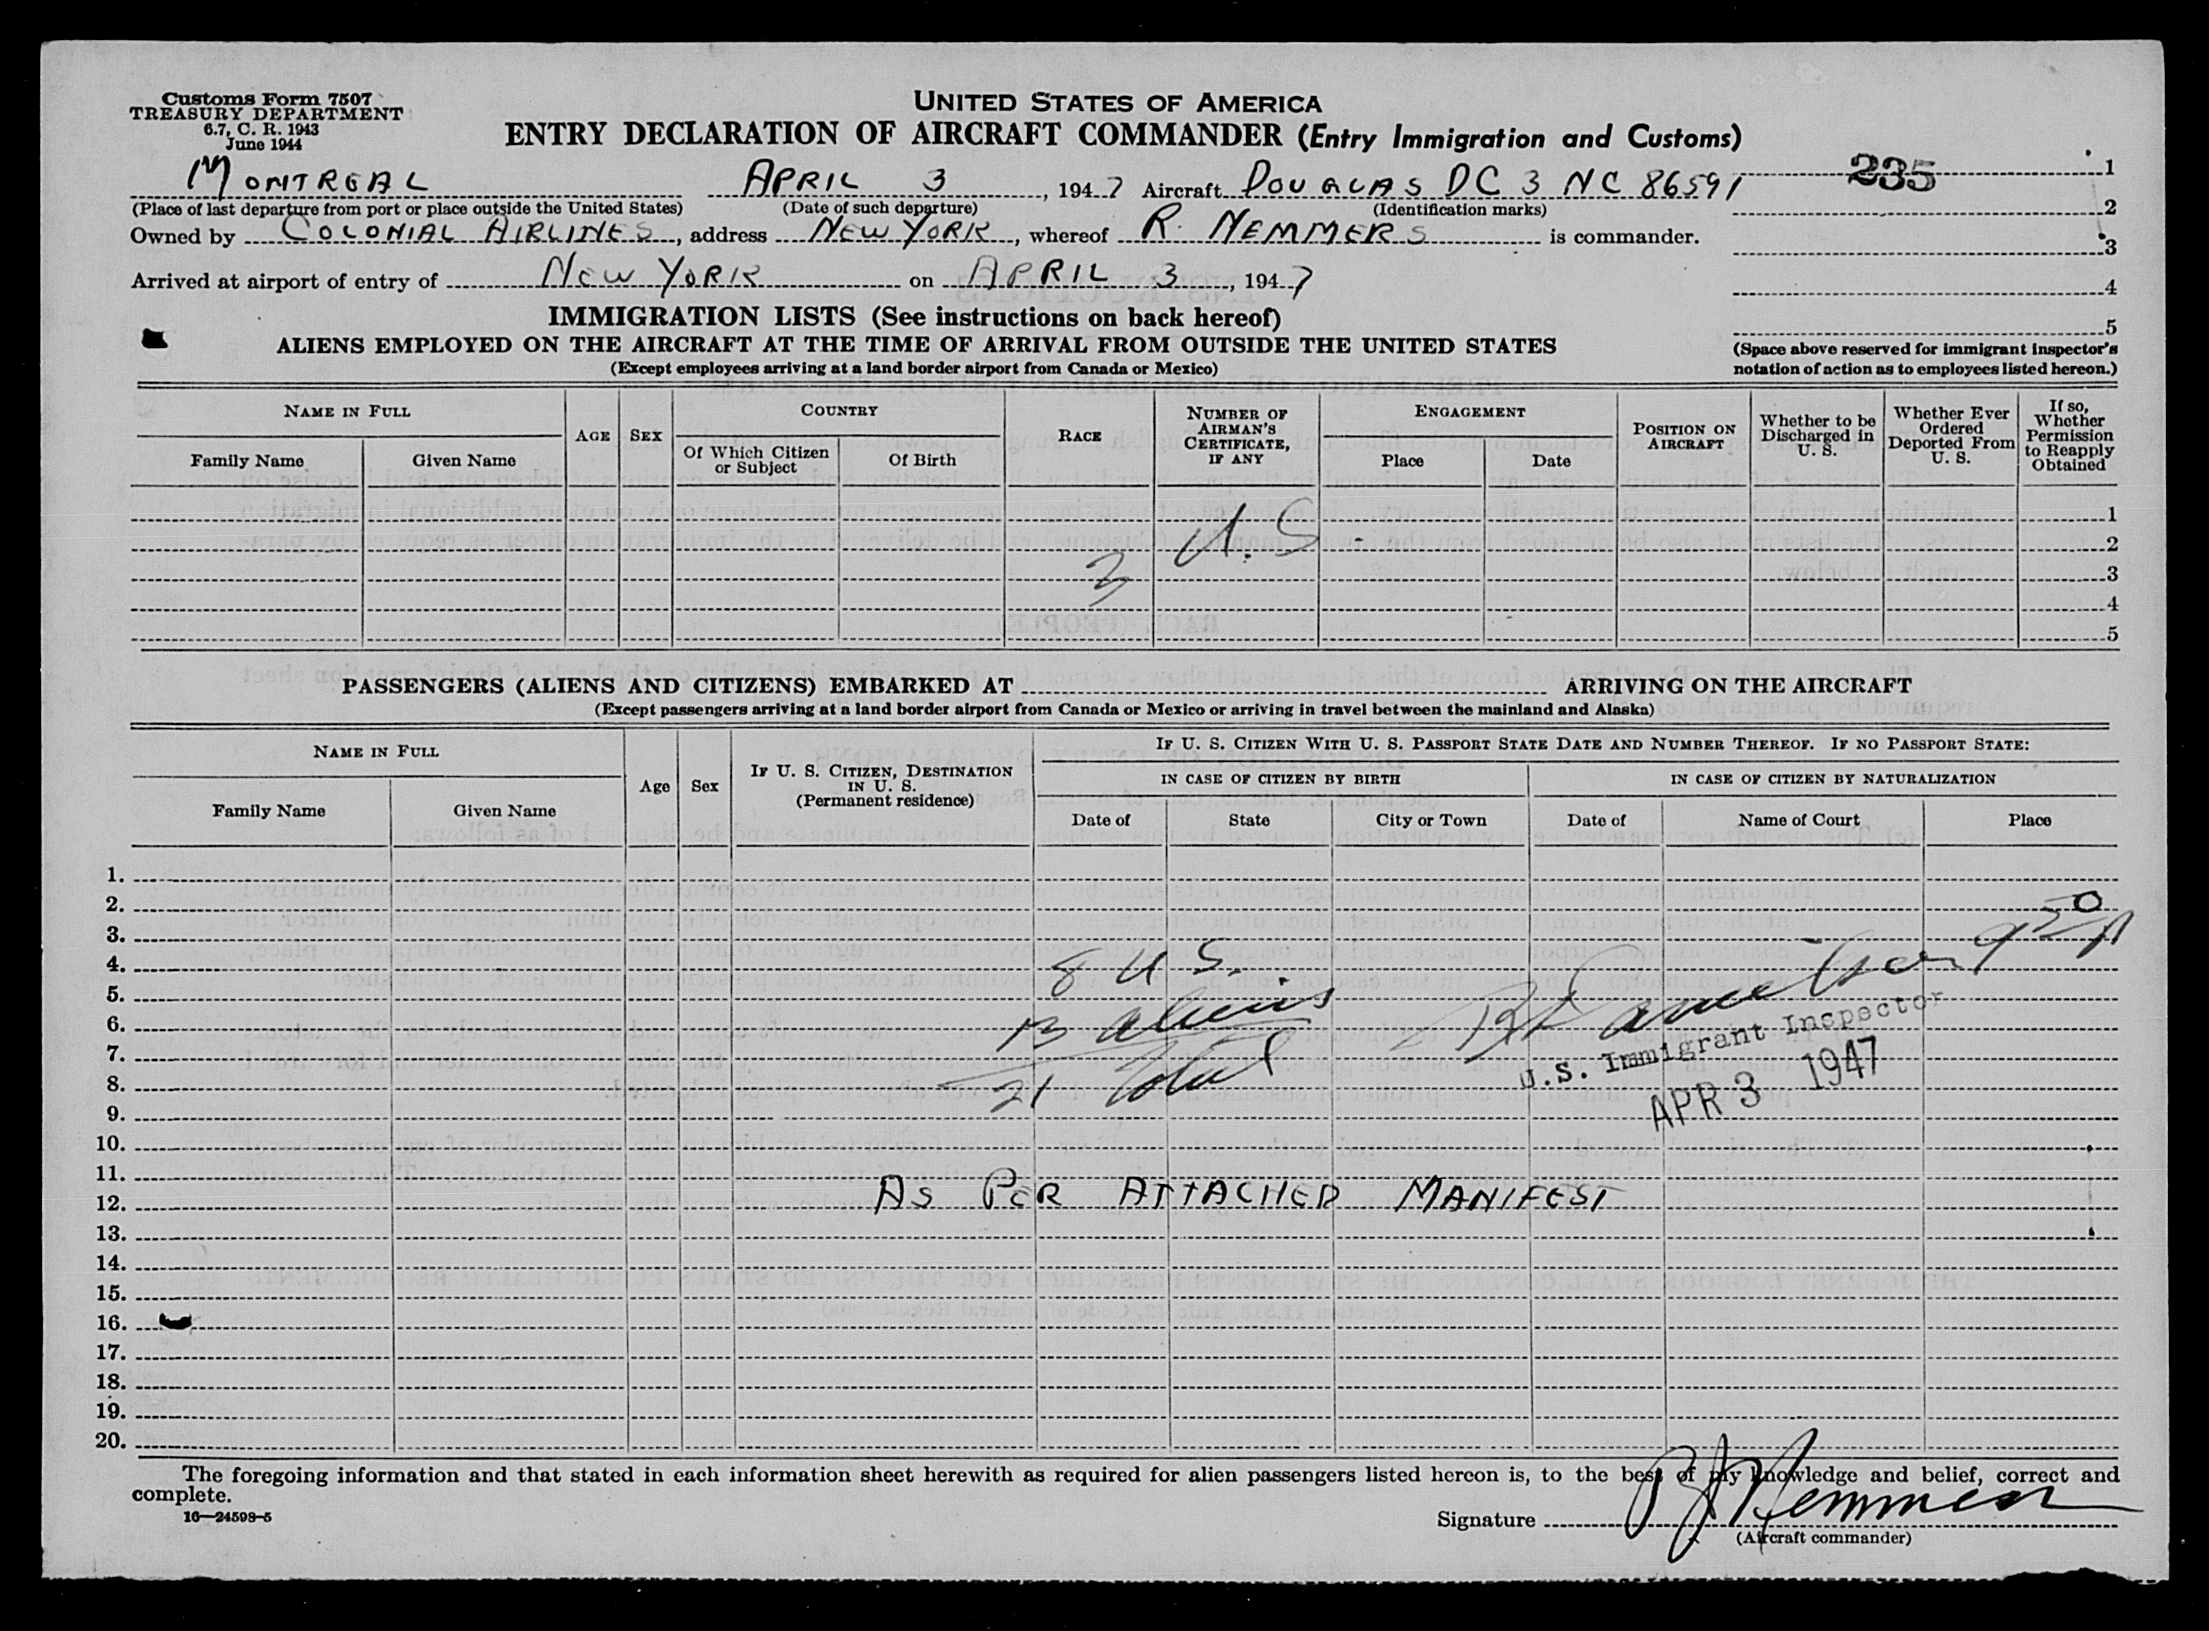 Customs Form 7507
TREASURY DEPARTMENT
6.7, C. R. 1943
June 1944
UNITED STATES OF AMERICA
ENTRY DECLARATION OF AIRCRAFT COMMANDER (Entry Immigration and Customs)
MONTREAL APRIL 3, 1947 Aircraft DOUGLAS DC 3 NC 86591
(Place of last departure from port or place outside the United States) (Date of such departure) (Identification marks)
235 1
2
3
4
5
Owned by COLONIAL AIRLINES, address NEW YORK, whereof R. NEMMERS is commander.
Arrived at airport of entry of NEW YORK on APRIL 3, 1947
(Space above reserved for immigrant inspector's
notation of action as to employees listed hereon.)
IMMIGRATION LISTS (See instructions on back hereof)
ALIENS EMPLOYED ON THE AIRCRAFT AT THE TIME OF ARRIVAL FROM OUTSIDE THE UNITED STATES
(Except employees arriving at a land border airport from Canada or Mexico)
NAME IN FULL
Family Name
Given Name
AGE
SEX
COUNTRY
Of Which Citizen
or Subject
Of Birth
RACE
NUMBER OF
AIRMAN'S
CERTIFICATE,
IF ANY
ENGAGEMENT
Place
Date
POSITION ON
AIRCRAFT
Whether to be
Discharged in
U. S.
Whether Ever
Ordered
Deported From
U. S.
If so,
Whether
Permission
to Reapply
Obtained
1
2
3
4
5
3 U.S.
PASSENGERS (ALIENS AND CITIZENS) EMBARKED AT ARRIVING ON THE AIRCRAFT
(Except passengers arriving at a land border airport from Canada or Mexico or arriving in travel between the mainland and Alaska)
NAME IN FULL
Family Name
Given Name
Age
Sex
IF U. S. CITIZEN, DESTINATION
IN U. S.
(Permanent residence)
IF U. S. CITIZEN WITH U. S. PASSPORT STATE DATE AND NUMBER THEREOF. IF NO PASSPORT STATE:
IN CASE OF CITIZEN BY BIRTH
Date of
State
City or Town
IN CASE OF CITIZEN BY NATURALIZATION
Date of
Name of Court
Place
1.
2.
3.
4.
5.
6.
7.
8.
9.
10.
11.
12.
13.
14.
15.
16.
17.
18.
19.
20.
8 U S.
13 aliens
21 Total
9 50 P
U.S. Immigrant Inspector
APR 3 1947
AS PER ATTACHED MANIFEST
The foregoing information and that stated in each information sheet herewith as required for alien passengers listed hereon is, to the best of my knowledge and belief, correct and
complete.
16—24598-5
Signature R J Nemmers
(Aircraft commander)